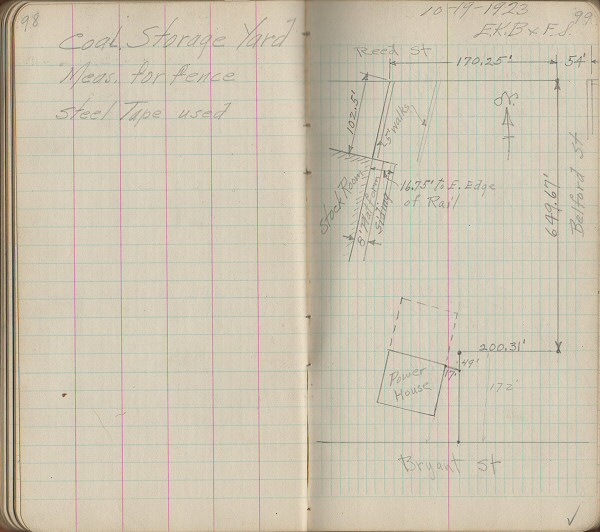 98
Coal Storage Yard
Meas. for fence
Steel Tape used
10-19-1923
99
E.K.B & F.J.
Reed St
170.25'
54'
102.5'
5' walks
N.
649.67'
Belford St
Stock Room
8' Platform
Siding
16.75' to E. Edge
of Rail
200.31'
49'
17'
172'
Power
House
Bryant St